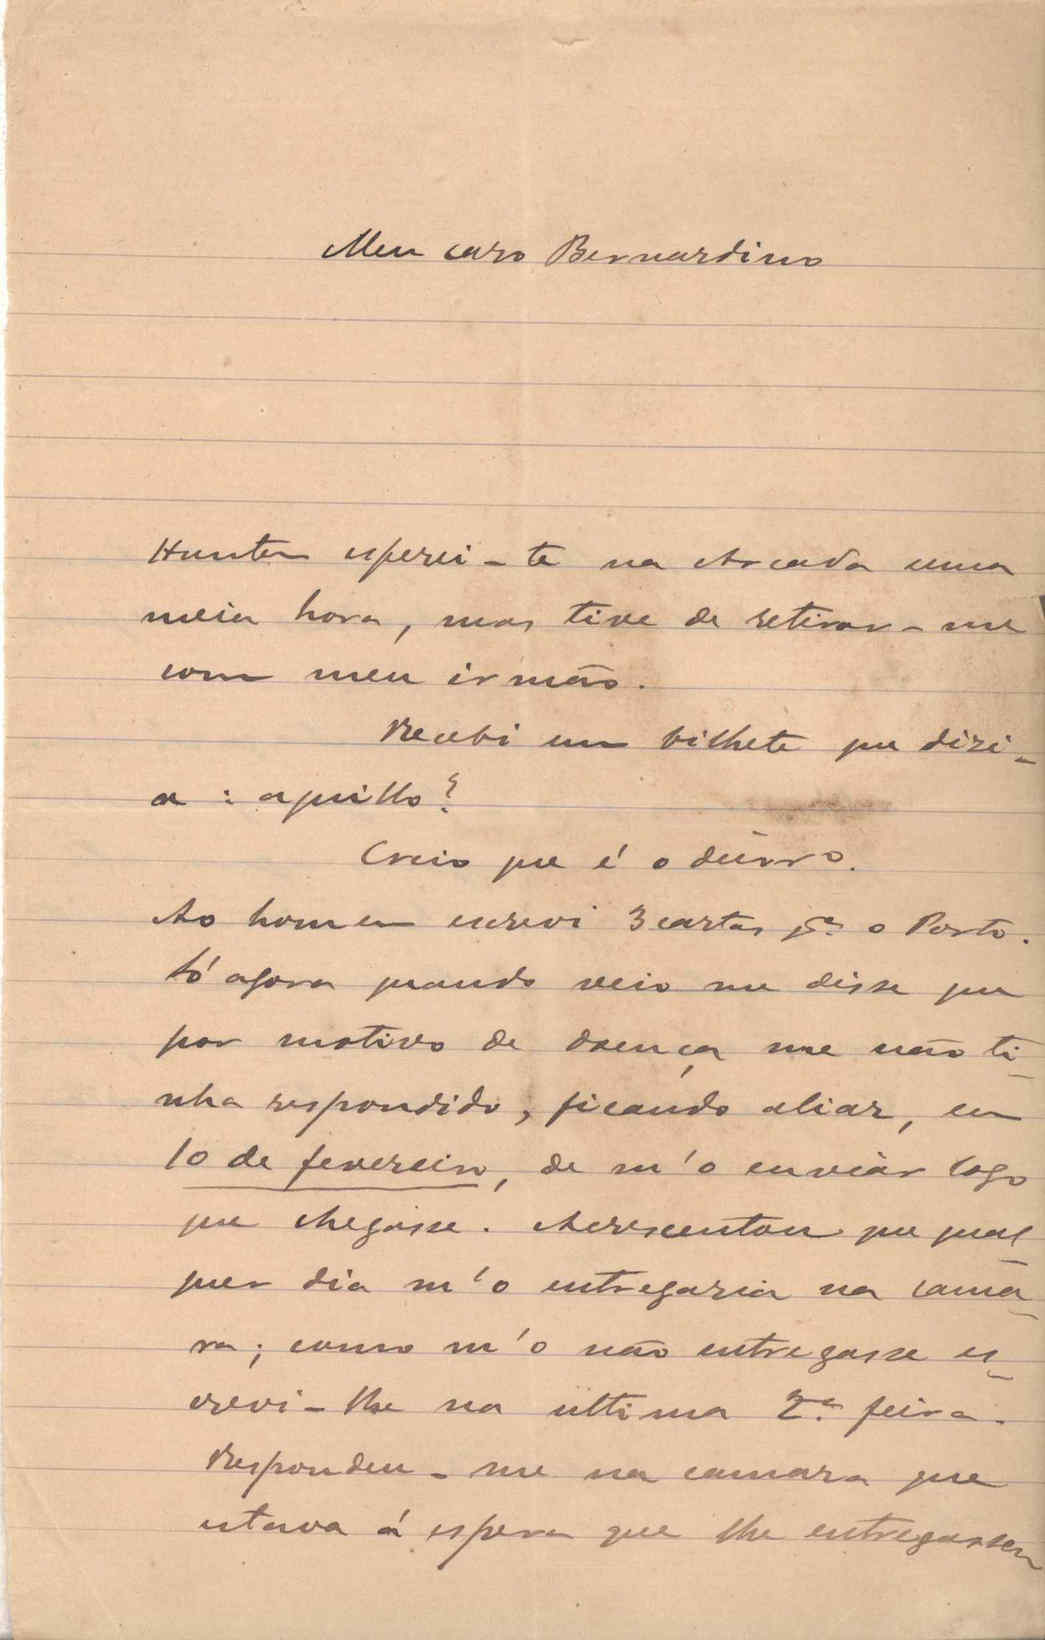 Meu caro Bernardino
Hontem esperei-te na Arcada uma
meia hora, mas tive de retirar-me
com meu irmão.
Recebi um bilhete que dizi-
a: aquillo?
Creio que é o
Ao homem escrevi 3 cartas pª o Porto.
Só agora quando veio me disse que
por motivo de doença me não ti-
nha respondido, ficando aliaz, em
10 de fevereiro, de m'o enviar logo
que chegasse. Acrescentou que qual
quer dia m'o entregaria na cama-
ra; como m'o não entregasse es-
crevi-lhe na ultima 2ª feira.
Respondeu-me na camara que
estava á espera que lhe entregassem